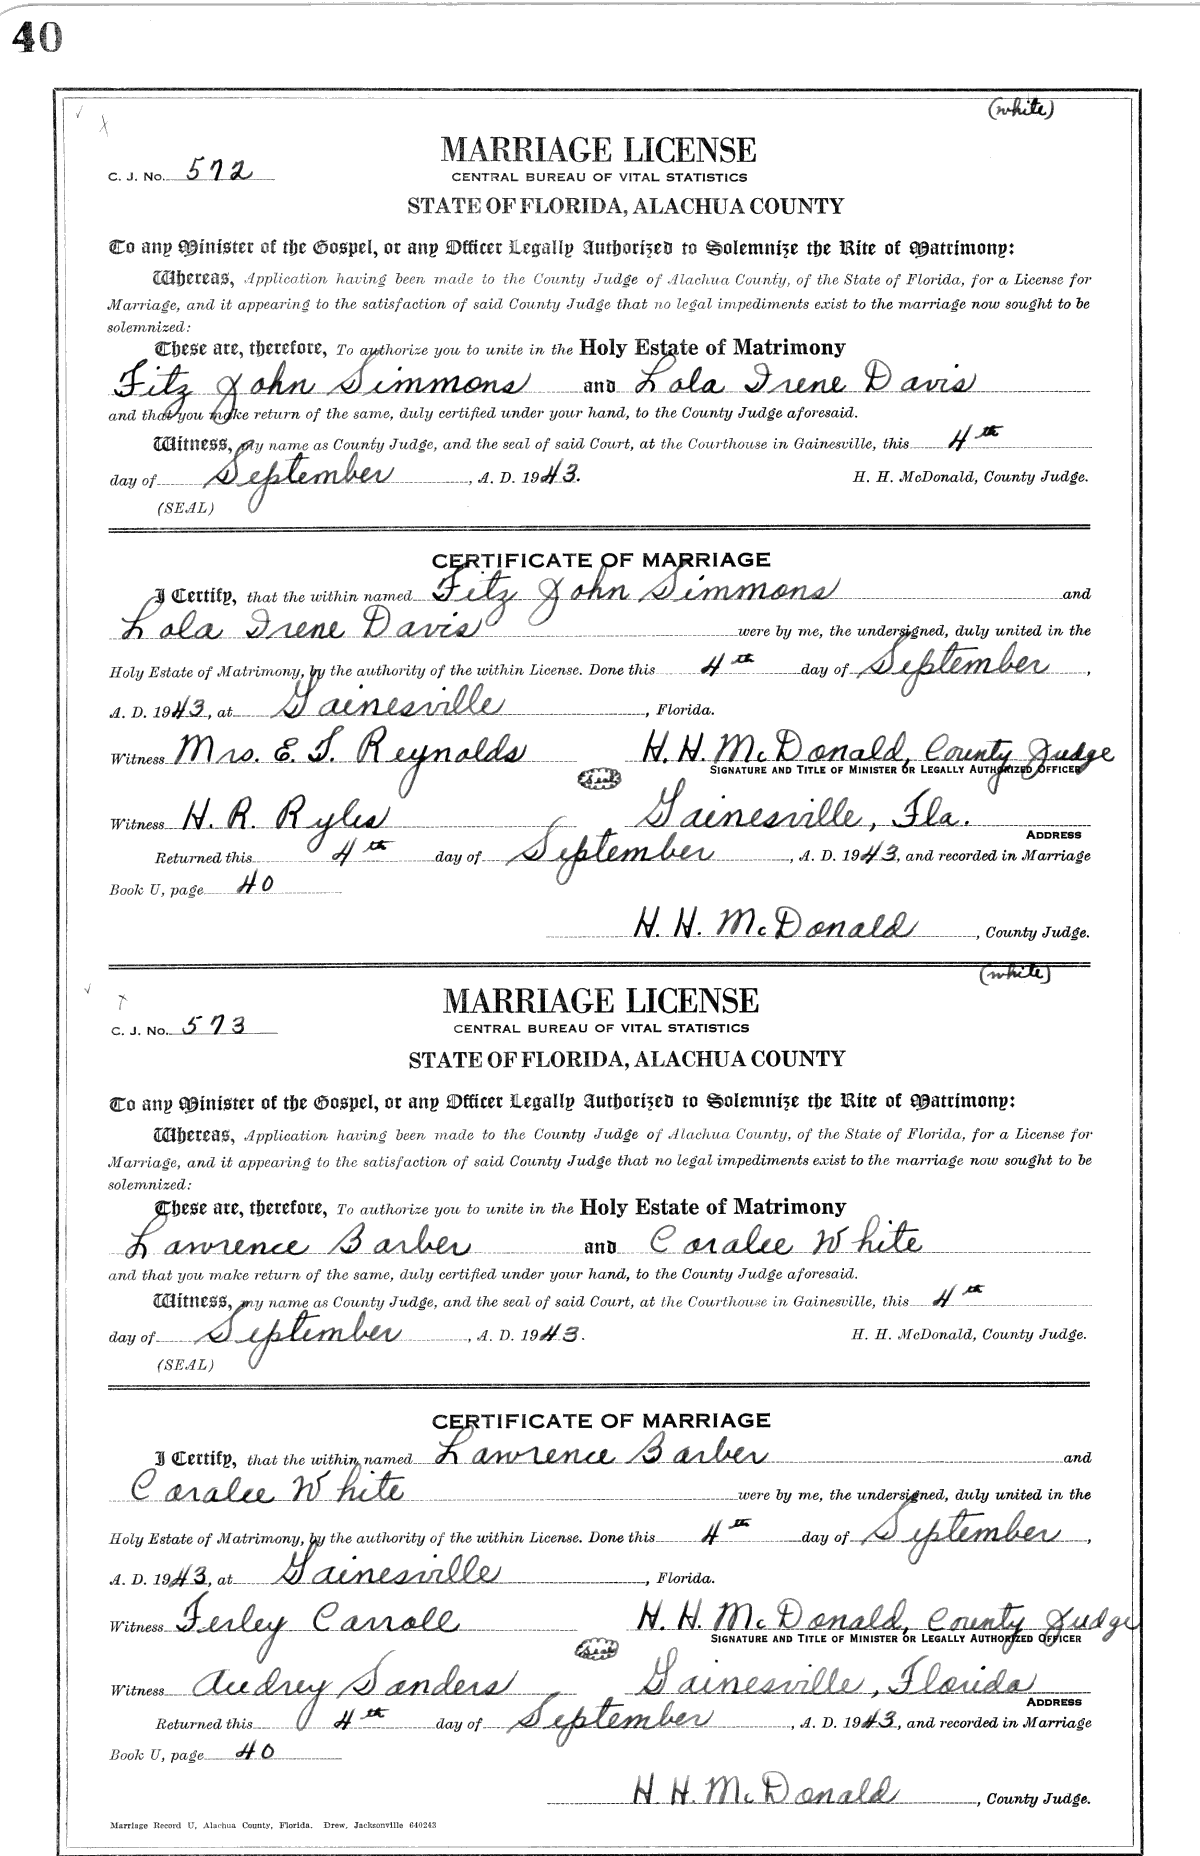 40
(white)
MARRIAGE LICENSE
C. J. No. 572
CENTRAL BUREAU OF VITAL STATISTICS
STATE OF FLORIDA, ALACHUA COUNTY
To any Minister of the Gospel, or any Officer Legally Authorized to Solemnize the Rite of Matrimony:
Whereas, Application having been made to the County Judge of Alachua County, of the State of Florida, for a License for
Marriage, and it appearing to the satisfaction of said County Judge that no legal impediments exist to the marriage now sought to be
solemnized:
These are, therefore, To authorize you to unite in the Holy Estate of Matrimony
Fitz John Simmons and Lola Irene Davis
and that you make return of the same, duly certified under your hand, to the County Judge aforesaid.
Witness, my name as County Judge, and the seal of said Court, at the Courthouse in Gainesville, this 4th
day of September, A. D. 1943. H. H. McDonald, County Judge.
(SEAL)
CERTIFICATE OF MARRIAGE
I Certify, that the within named Fitz John Simmons and
Lola Irene Davis were by me, the undersigned, duly united in the
Holy Estate of Matrimony, by the authority of the within License. Done this 4th day of September,
A. D. 1943, at Gainesville, Florida.
Witness Mrs. E. T. Reynolds H. H. McDonald, County Judge
Seal SIGNATURE AND TITLE OF MINISTER OR LEGALLY AUTHORIZED OFFICER
Witness H. R. Ryles Gainesville, Fla.
ADDRESS
Returned this 4th day of September, A. D. 1943, and recorded in Marriage
Book U, page 40
H. H. McDonald, County Judge.
(white)
MARRIAGE LICENSE
C. J. No. 573
CENTRAL BUREAU OF VITAL STATISTICS
STATE OF FLORIDA, ALACHUA COUNTY
To any Minister of the Gospel, or any Officer Legally Authorized to Solemnize the Rite of Matrimony:
Whereas, Application having been made to the County Judge of Alachua County, of the State of Florida, for a License for
Marriage, and it appearing to the satisfaction of said County Judge that no legal impediments exist to the marriage now sought to be
solemnized:
These are, therefore, To authorize you to unite in the Holy Estate of Matrimony
Lawrence Barber and Coralee White
and that you make return of the same, duly certified under your hand, to the County Judge aforesaid.
Witness, my name as County Judge, and the seal of said Court, at the Courthouse in Gainesville, this 4th
day of September, A. D. 1943. H. H. McDonald, County Judge.
(SEAL)
CERTIFICATE OF MARRIAGE
I Certify, that the within named Lawrence Barber and
Coralee White were by me, the undersigned, duly united in the
Holy Estate of Matrimony, by the authority of the within License. Done this 4th day of September,
A. D. 1943, at Gainesville, Florida.
Witness Ferley Carroll H. H. McDonald, County Judge
Seal SIGNATURE AND TITLE OF MINISTER OR LEGALLY AUTHORIZED OFFICER
Witness Audrey Sanders Gainesville, Florida
ADDRESS
Returned this 4th day of September, A. D. 1943, and recorded in Marriage
Book U, page 40
H. H. McDonald, County Judge.
Marriage Record U, Alachua County, Florida. Drew, Jacksonville 640243